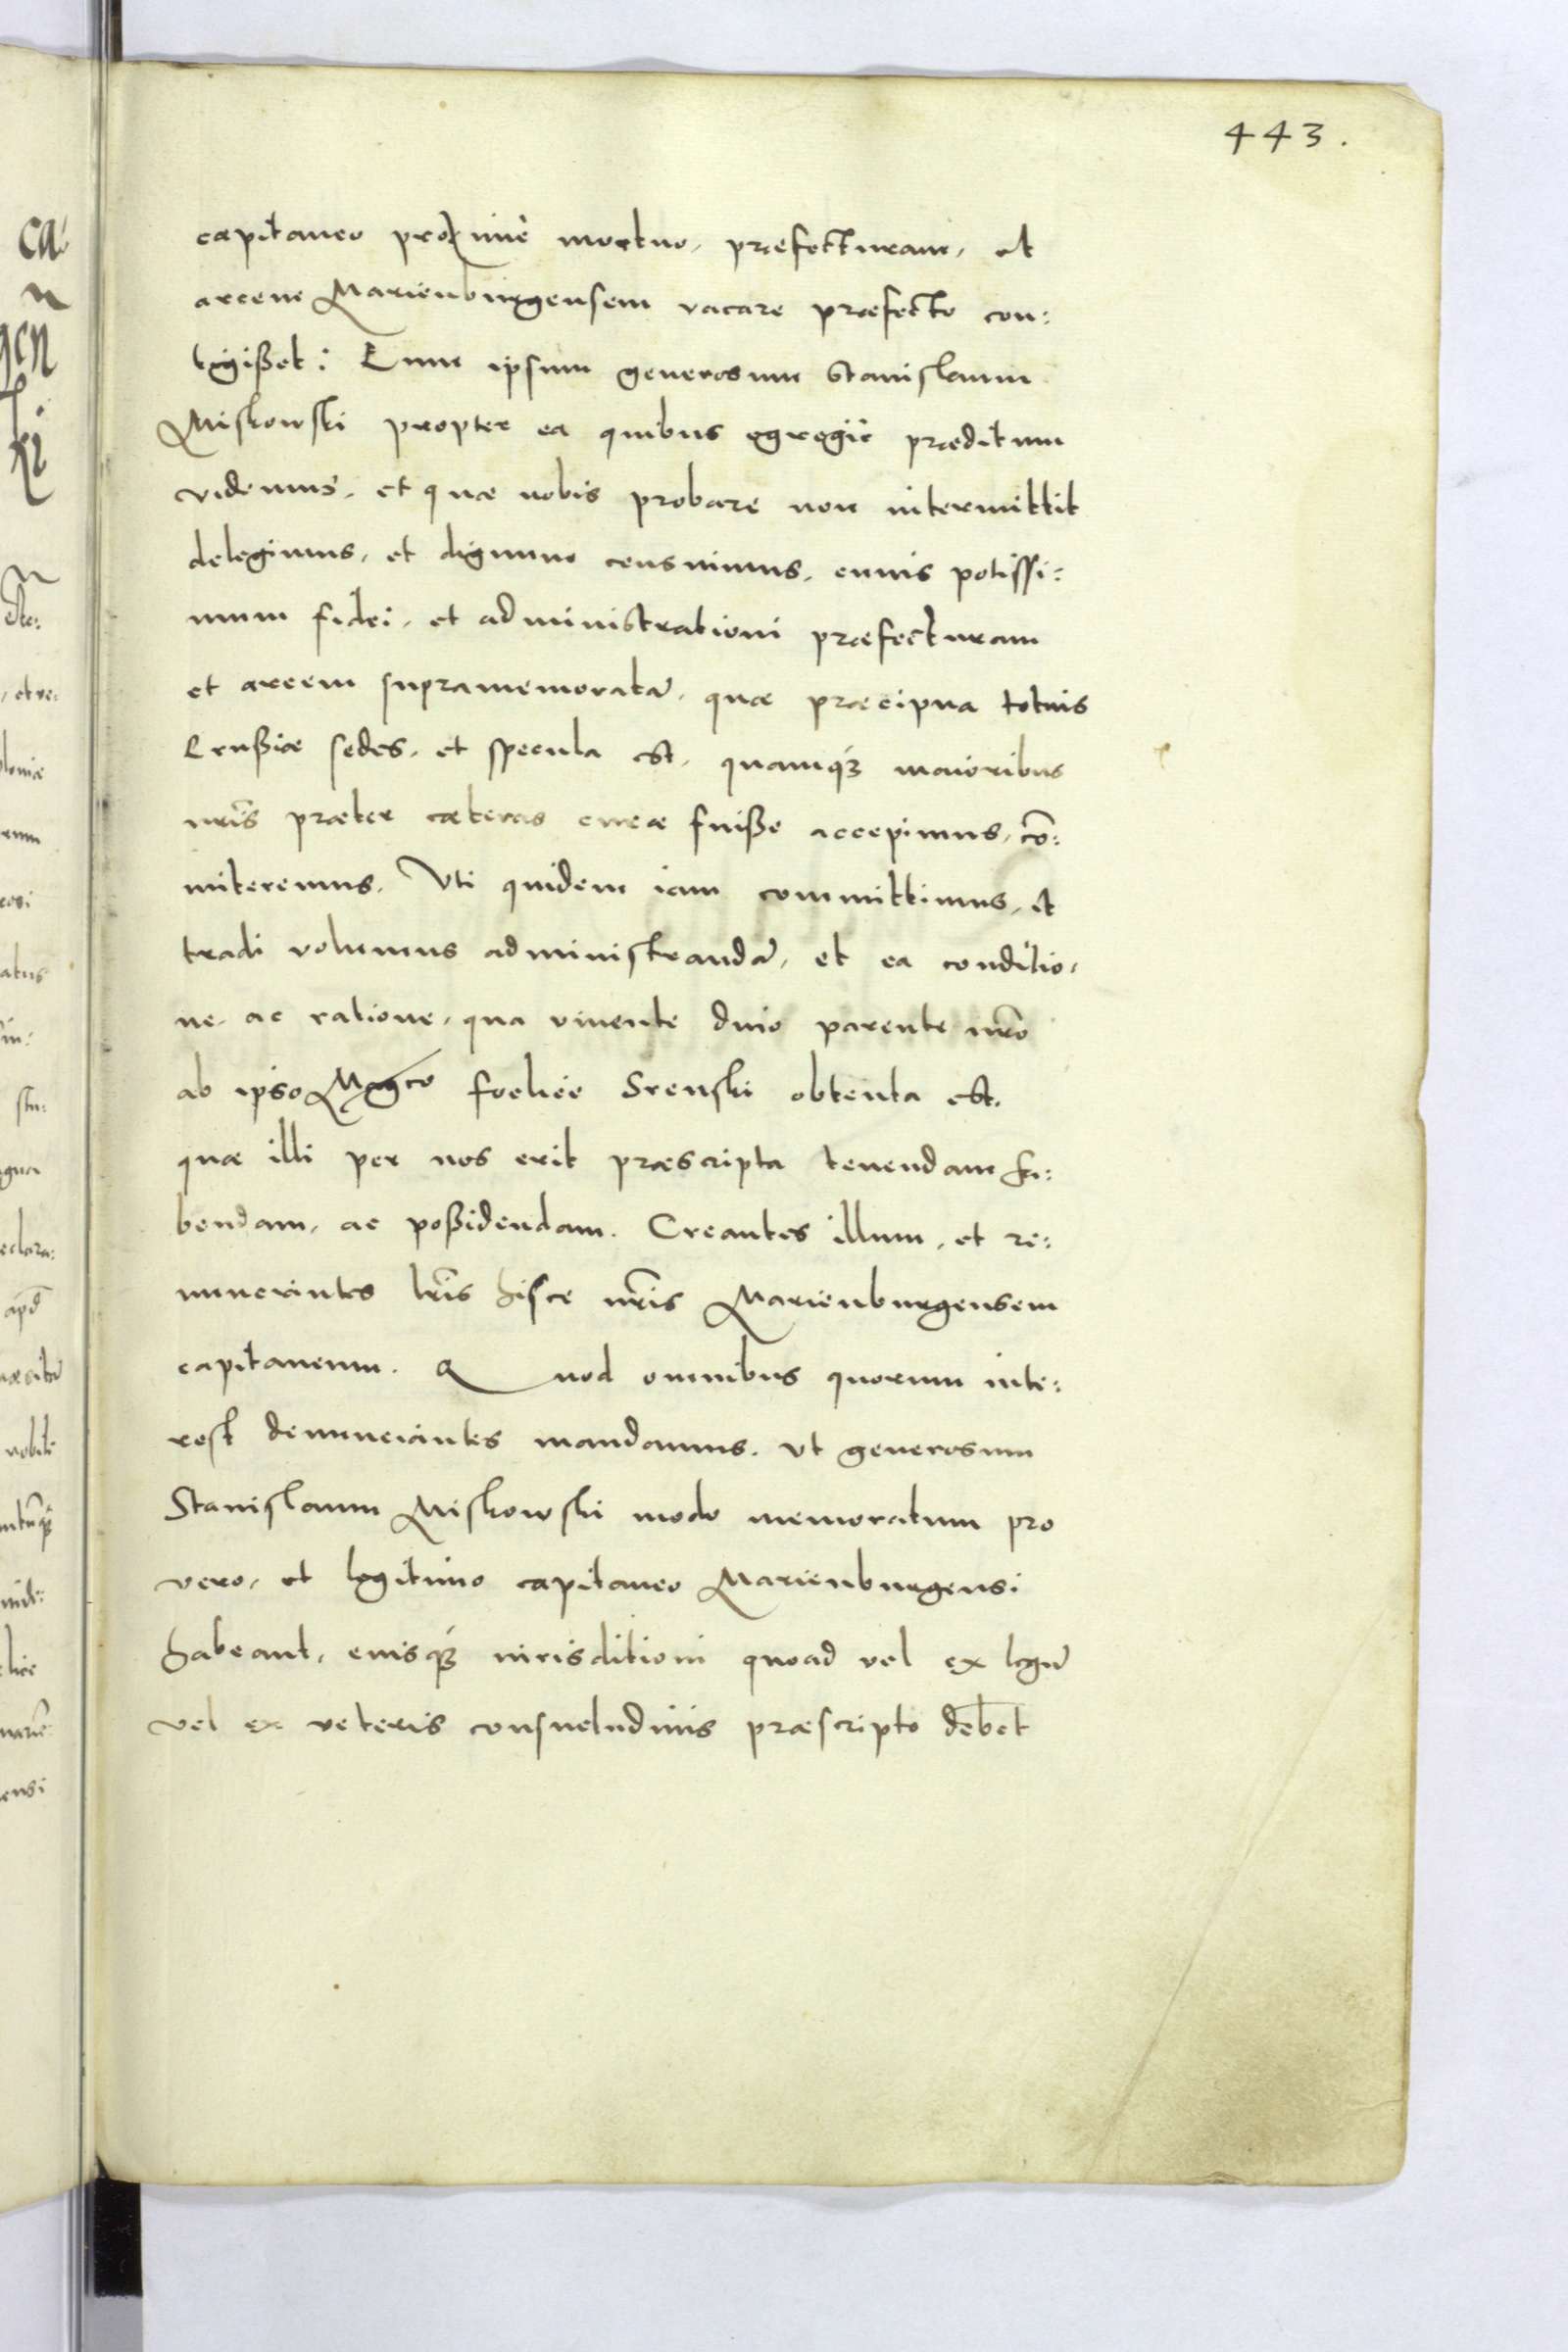 443.
capitaneo proximè mortuo, præfecturam, et
arcem Marienburgensem vacare præfecto con:
tigißet: Eum ipsum generosum Stanislaum
Miskowski propter ea quibus egregiè præditum
videmus, et quæ nobis probare non intermittit
delegimus, et dignum censuimus, cuius potissi:
mum fidei, et administrationi præfecturam
et arcem supramemoratã, quæ præcipua totius
Prußiæ sedes, et specula est, quamq; maioribus
nr̃is præter cæteras curæ fuiße accepimus, cõ:
mitteremus. Vti quidem iam committimus, et
tradi volumus administrandã, et ea conditio,
ne, ac ratione, qua viuente diuo parente nr̃o
ab ipso Mgco foelice Srenski obtenta est,
quæ illi per nos erit præscripta tenendam ha:
bendam, ac poßidendam. Creantes illum, et re:
nunciantes lr̃is hisce nr̃is Marienburgensem
capitaneum. Quod omnibus quorum inte:
rest denunciantes mandamus, vt generosum
Stanislaum Miskowski modo memoratum pro
vero, et legitimo capitaneo Marienburgensi
habeant, eiusq; iurisditioni quoad vel ex legũ
vel ex veteris consuetudinis præscripto debet